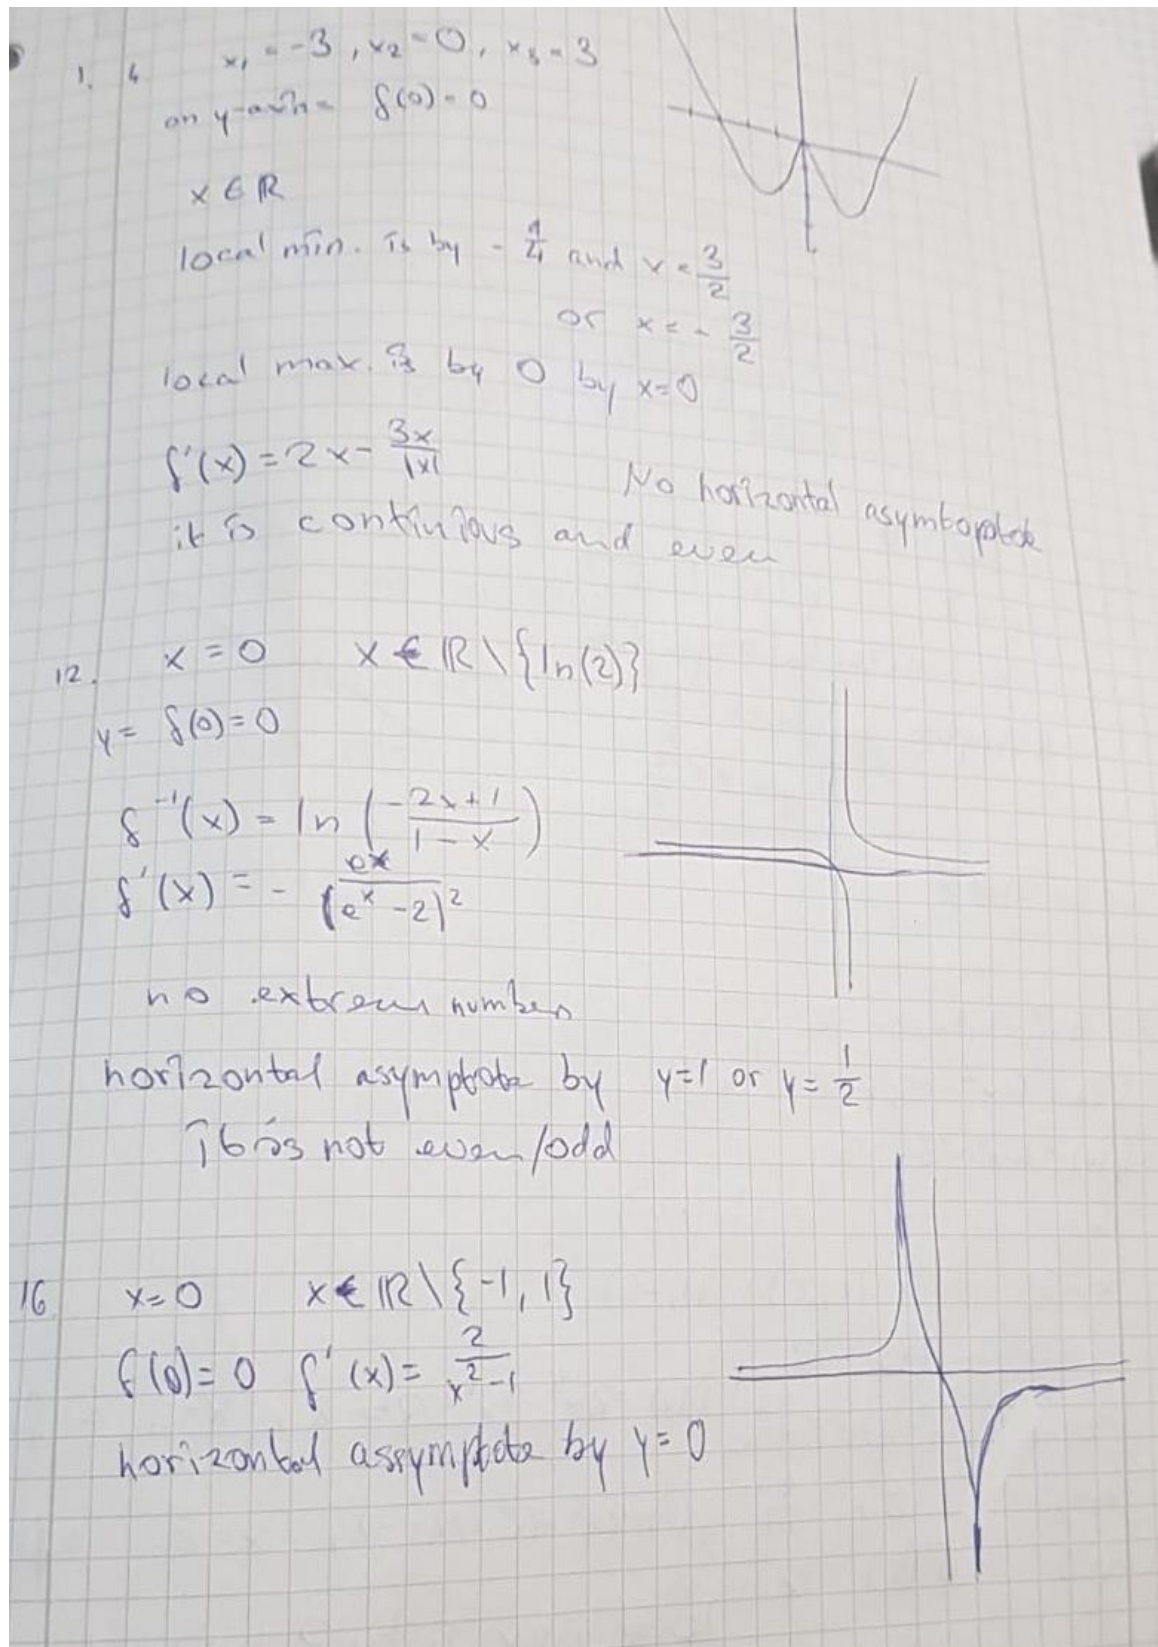 1. 4 x₁ = -3, x₂ = 0, x₃ = 3
on y-axis = f(0) = 0
x ∈ ℝ
local min. is by - 9/4 and x = 3/2
or x = - 3/2
local max. is by 0 by x=0
f'(x) = 2x - 3x/|x|
No horizontal asymtoptote
it is continious and even
12. x = 0 x ∈ ℝ \ {ln(2)}
y = f(0) = 0
f⁻¹(x) = ln (- 2x+1/1-x)
f'(x) = - eˣ/(eˣ - 2)²
no extrem numbers
horizontal asymptote by y=1 or y = 1/2
it is not even/odd
16 x=0 x ∈ ℝ \ {-1, 1}
f(0) = 0 f'(x) = 2/x²-1
horizontal assymptote by y = 0